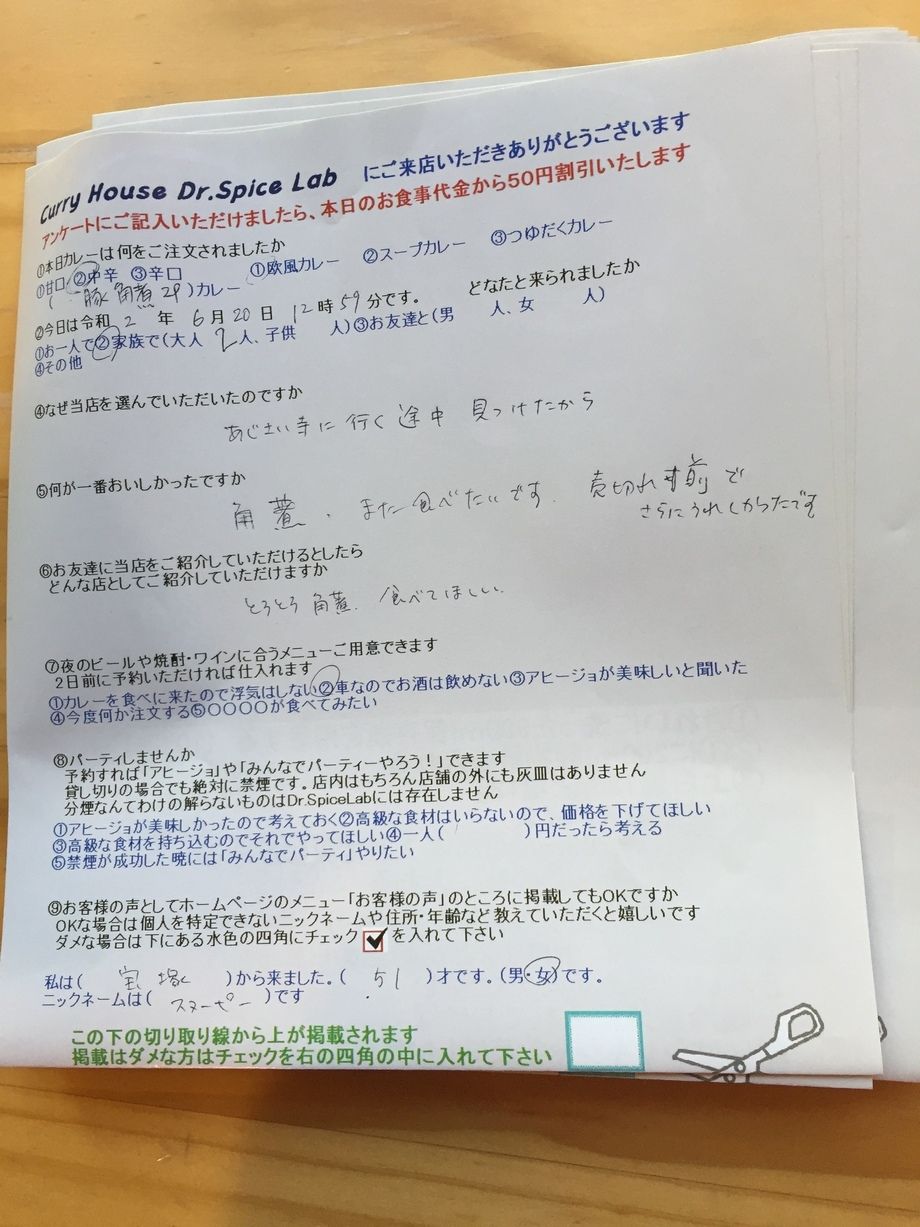 Curry House Dr.Spice Lab にご来店いただきありがとうございます
アンケートにご記入いただけましたら、本日のお食事代金から50円割引いたします
①本日カレーは何をご注文されましたか
①甘口 ②中辛 ③辛口 ①欧風カレー ②スープカレー ③つゆだくカレー
( 豚角煮 )カレー
②今日は令和 2 年 6月20日 12時59分です。 どなたと来られましたか
①お一人で②家族で(大人 2人、子供 人)③お友達と(男 人、女 人)
④その他
④なぜ当店を選んでいただいたのですか
あじさい寺に行く途中 見つけたから
⑤何が一番おいしかったですか
角煮、また食べたいです。売切れ寸前で
さらにうれしかったです
⑥お友達に当店をご紹介していただけるとしたら
どんな店としてご紹介していただけますか
とろとろ角煮、食べてほしい。
⑦夜のビールや焼酎・ワインに合うメニューご用意できます
2日前に予約いただければ仕入れます
①カレーを食べに来たので浮気はしない②車なのでお酒は飲めない③アヒージョが美味しいと聞いた
④今度何か注文する⑤〇〇〇〇が食べてみたい
⑧パーティしませんか
予約すれば「アヒージョ」や「みんなでパーティーやろう!」できます
貸し切りの場合でも絶対に禁煙です。店内はもちろん店舗の外にも灰皿はありません
分煙なんてわけの解らないものはDr.SpiceLabには存在しません
①アヒージョが美味しかったので考えておく②高級な食材はいらないので、価格を下げてほしい
③高級な食材を持ち込むのでそれでやってほしい④一人( )円だったら考える
⑤禁煙が成功した暁には「みんなでパーティ」やりたい
⑨お客様の声としてホームページのメニュー「お客様の声」のところに掲載してもOKですか
OKな場合は個人を特定できないニックネームや住所・年齢など教えていただくと嬉しいです
ダメな場合は下にある水色の四角にチェック を入れて下さい
私は( 宝塚 )から来ました。( 51 )才です。(男・女)です。
ニックネームは( スヌーピー )です
この下の切り取り線から上が掲載されます
掲載はダメな方はチェックを右の四角の中に入れて下さい